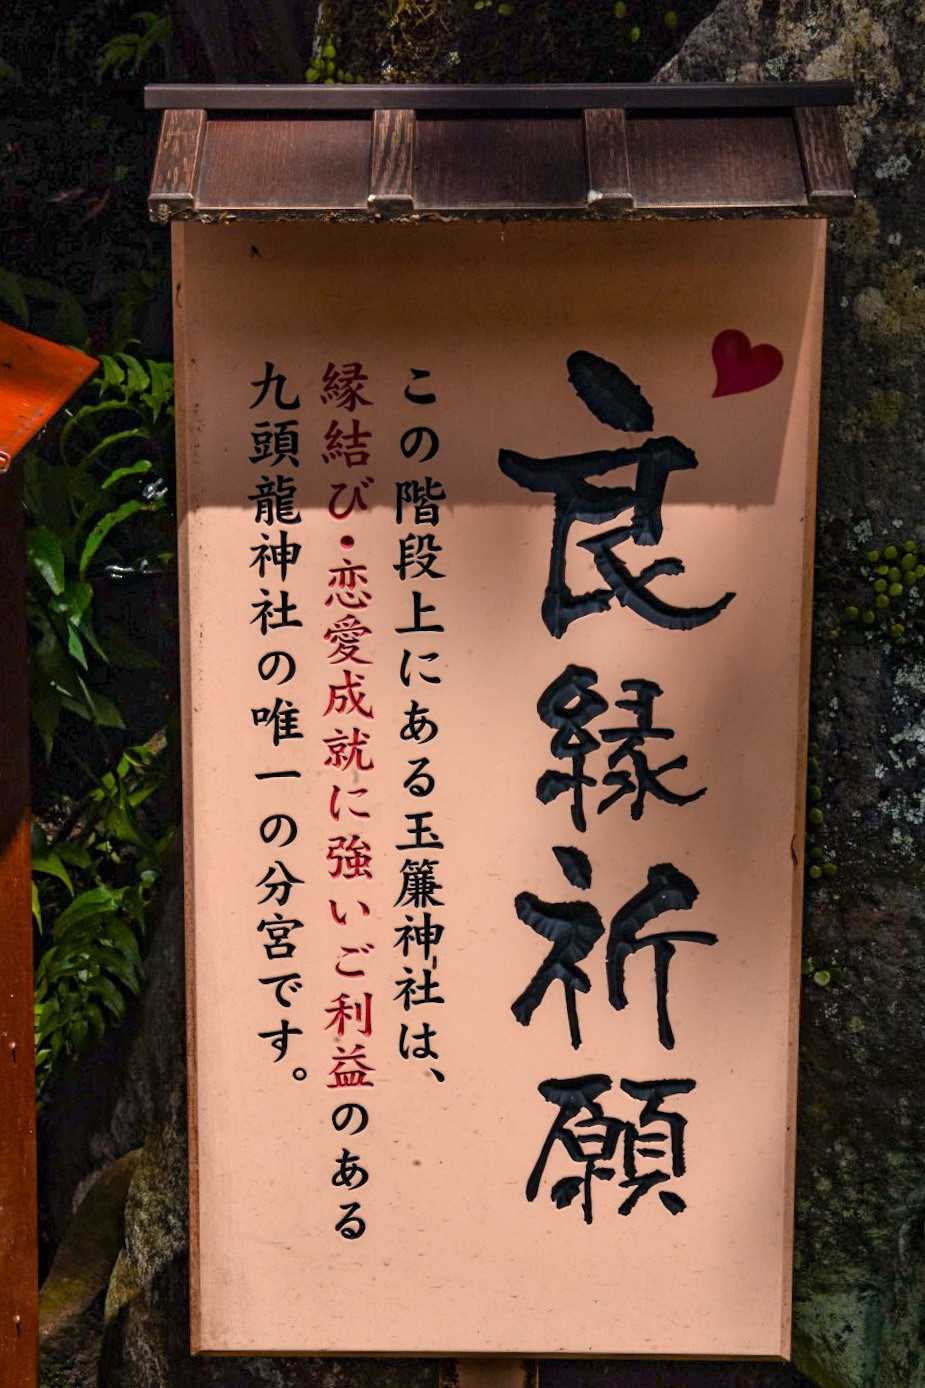 良縁祈願
この階段上にある玉簾神社は、
縁結び・恋愛成就に強いご利益のある
九頭龍神社の唯一の分宮です。